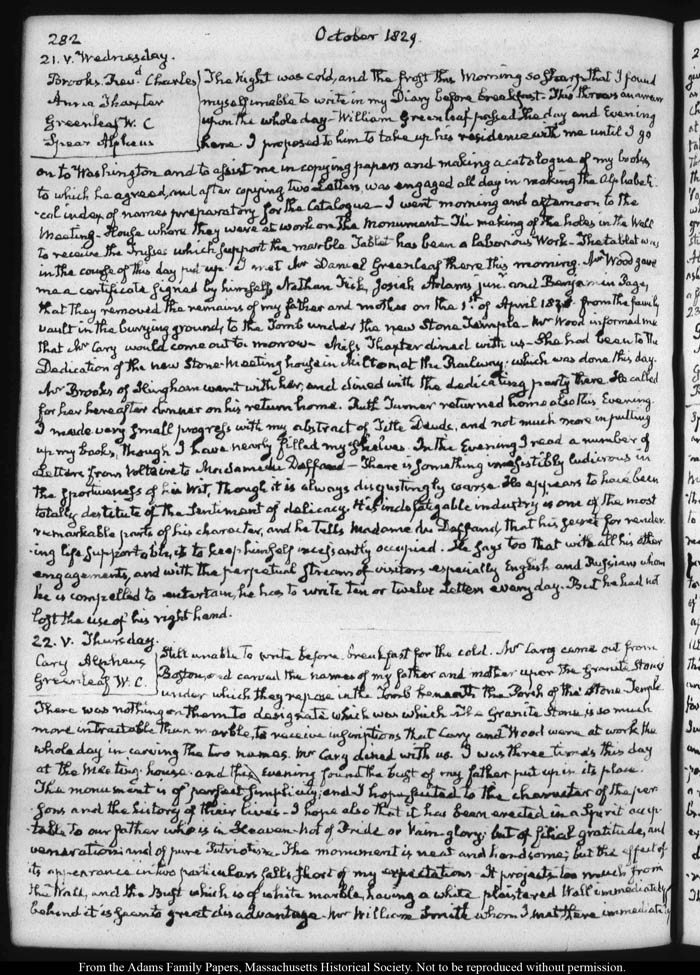 282
October 1829.
21. V. Wednesday.
Brooks. Revd. Charles
Anna Thaxter
Greenleaf W. C
Spear Alpheus
The Night was cold, and the frost this Morning so sharp that I found
myself unable to write in my Diary before breakfast. This throws an arrear
upon the whole day. William Greenleaf passed the day and Evening
here. I proposed to him to take up his residence with me until I go
on to Washington and to assist me in copying papers and making a catalogue of my books,
to which he agreed, and after copying two Letters, was engaged all day in making the Alphabeti-
-cal index of names preparatory for the Catalogue. I went morning and afternoon to the
Meeting-House where they were at work on the Monument. The making of the holes in the Wall
to receive the trusses which support the marble Tablet has been a laborious Work. The tablet was
in the course of this day put up. I met Mr Daniel Greenleaf there this morning. Mr Wood gave
me a certificate signed by himself, Nathan Fisk, Josiah Adams junr. and Benjamin Page,
that they removed the remains of my father and mother on the 1st. of April 1828. from the family
vault in the burying ground, to the Tomb under the new Stone Temple. Mr Wood informed me
that Mr Cary would come out to-morrow. Miss Thaxter dined with us. She had been to the
Dedication of the new Stone-Meeting house in Milton, at the Railway, which was done this day.
Mr Brooks of Hingham went with her, and dined with the dedicating party there. He called
for her here after dinner on his return home. Ruth Turner returned home also this Evening.
I made very small progress with my abstract of Title Deeds, and not much more in putting
up my books, though I have nearly filled my shelves. In the Evening I read a number of
Letters from Voltaire to Madame du Deffand. There is something irresistibly ludicrous in
the sportiveness of his Wit, though it is always disgustingly coarse. He appears to have been
totally destitute of the Sentiment of delicacy. His indefatigable industry is one of the most
remarkable parts of his character, and he tells Madame du Deffand, that his secret for render-
-ing life supportable, is to keep himself incessantly occupied. He says too that with all his other
engagements, and with the perpetual stream of visitors especially English and Russians whom
he is compelled to entertain, he has to write ten or twelve Letters every day. But he had not
lost the use of his right hand.
22. V. Thursday.
Cary Alpheus
Greenleaf W. C.
Still unable to write before breakfast for the cold. Mr Cary came out from
Boston, and carved the names of my father and mother upon the Granite Stones
under which they repose in the Tomb beneath the Porch of the Stone Temple.
There was nothing on them to designate which was which. The Granite Stone is so much
more intractable than marble, to receive inscriptions that Cary and Wood were at work the
whole day in carving the two names. Mr Cary dined with us. I was three times this day
at the Meeting-house. and this Evening found the bust of my father put up in its place.
This monument is of perfect simplicity, and I hope suited to the character of the per-
sons and the history of their lives. I hope also that it has been erected in a Spirit accep-
table to our father who is in Heaven. Not of Pride or Vain-glory; but of filial gratitude, and
veneration; and of pure Patriotism. The monument is neat and handsome; but the effect of
its appearance in two particulars falls short of my expectations. It projects too much from
the Wall, and the Bust which is of white marble, having a white plaistered Wall immediately
behind it is seen to great disadvantage. Mr William Smith whom I met there immediately
From the Adams Family Papers, Massachusetts Historical Society. Not to be reproduced without permission.